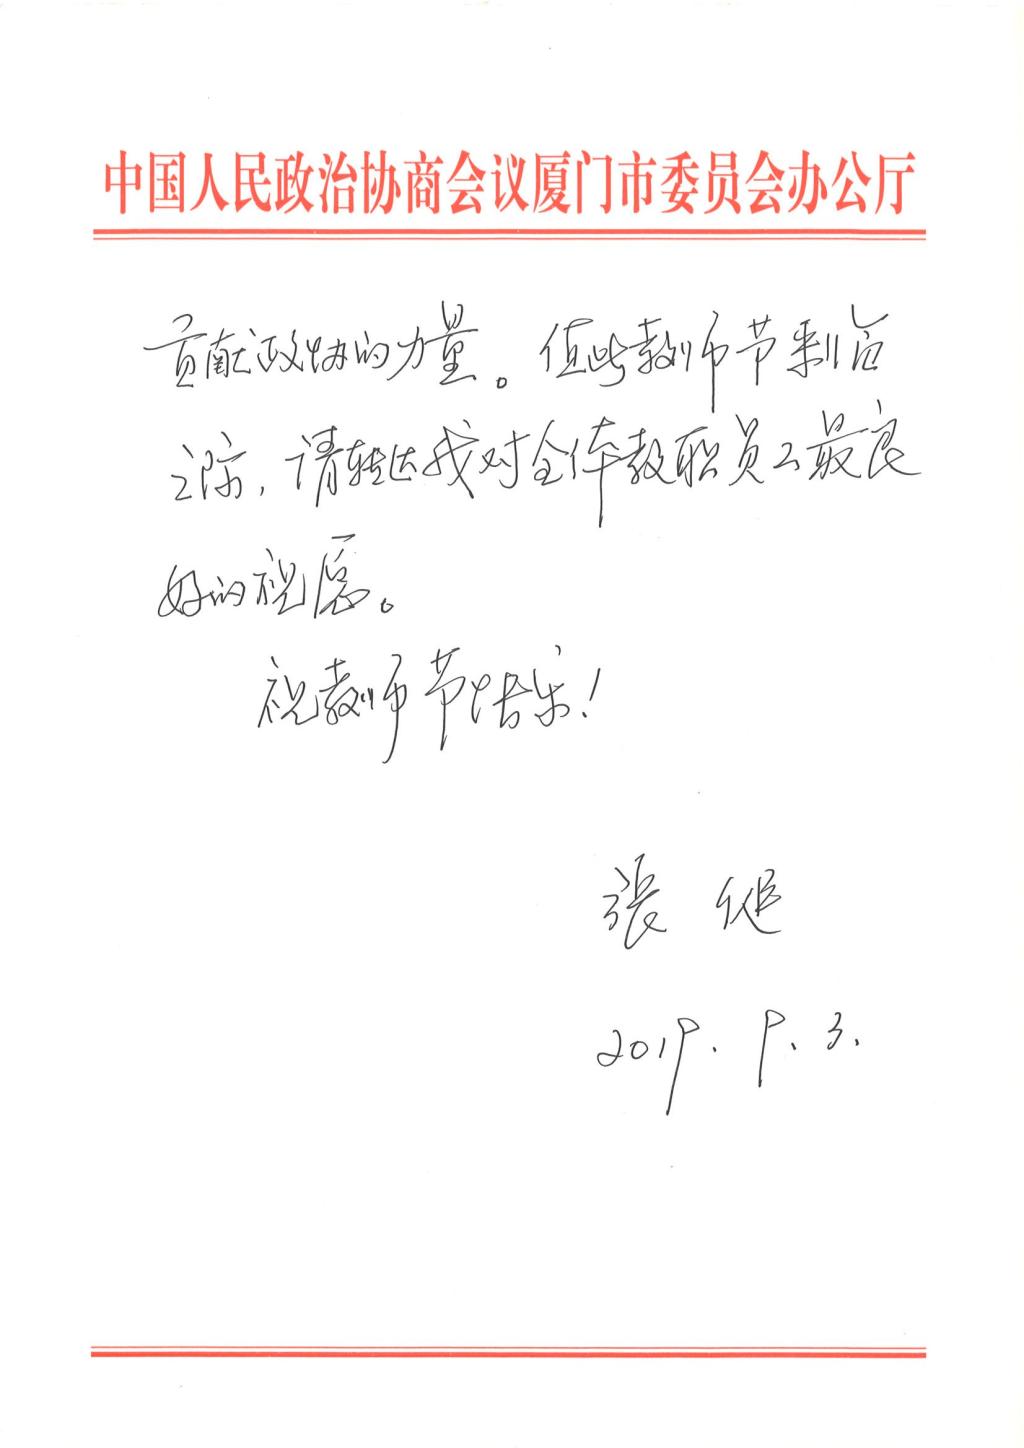 中国人民政治协商会议厦门市委员会办公厅
贡献政协的力量。值此教师节来临
之际，请转达我对全体教职员工最良
好的祝愿。
祝教师节快乐！
張
2019.9.3.